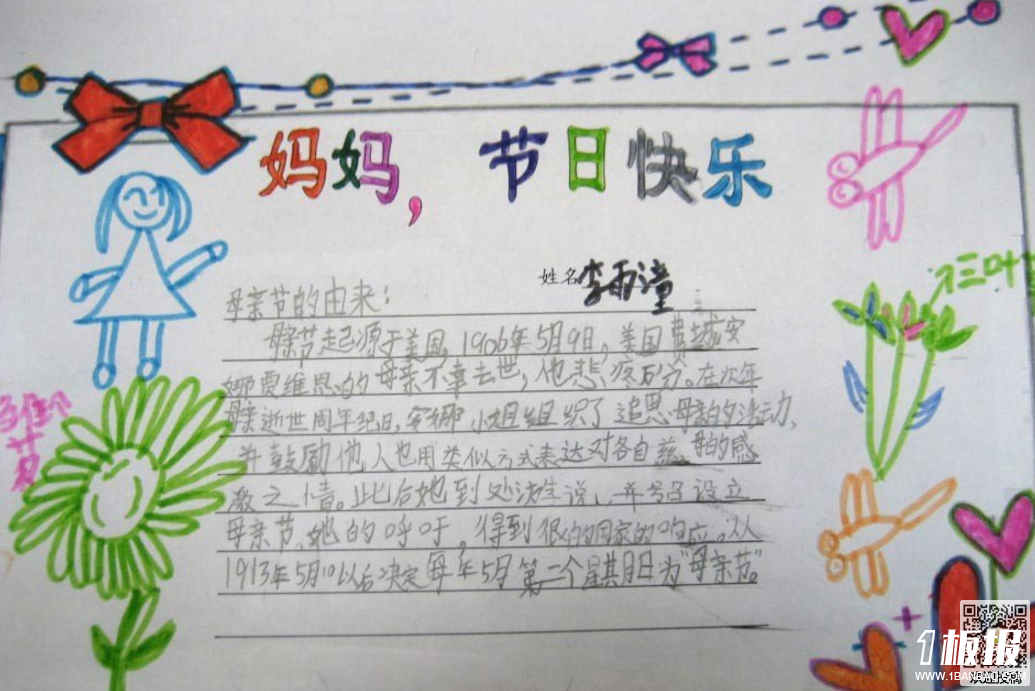 妈妈，节日快乐
姓名李雨潼
母亲节的由来：
母亲节起源于美国，1906年5月9日，美国费城安
娜贾维思的母亲不幸去世，他悲痛万分。在次年
母亲逝世周年纪日，安娜小姐组织了追思母亲的活动，
并鼓励他人也用类似方式表达对各自慈母的感
激之情。此后她到处说，并号召设立
母亲节。她的呼吁，得到很的国家的响应。从
1913年5月10以后决定每年5月第二个星期日为“母亲节”。
1板报
WWW.1BANBAO.COM